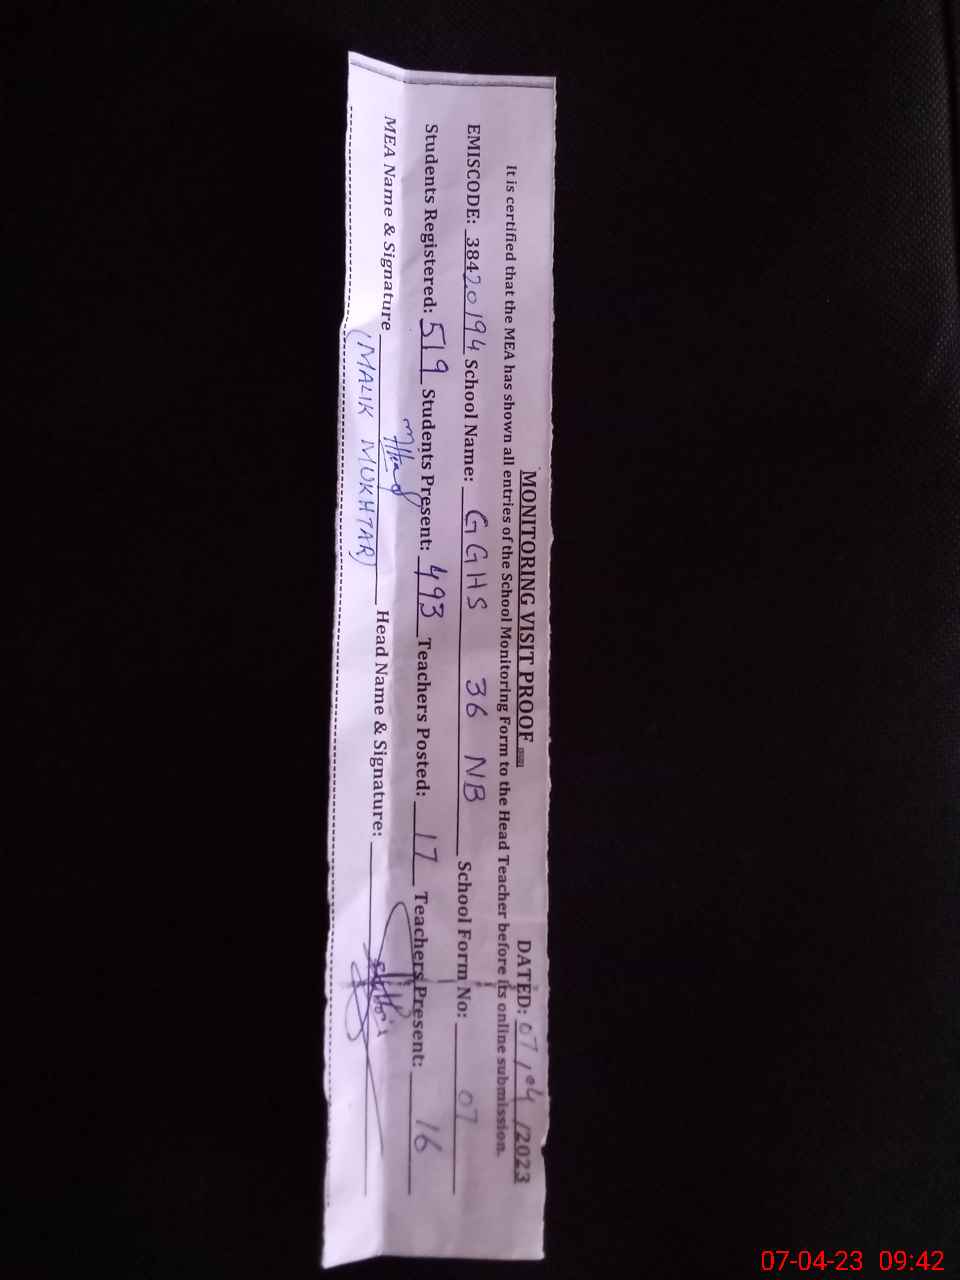 MONITORING VISIT PROOF DATED: 07/04/2023
It is certified that the MEA has shown all entries of the School Monitoring Form to the Head Teacher before its online submission.
EMISCODE: 38420194 School Name: GGHS 36 NB School Form No: 07
Students Registered: 519 Students Present: 493 Teachers Posted: 17 Teachers Present: 16
MEA Name & Signature Head Name & Signature:
(MALIK MUKHTAR)
07-04-23 09:42